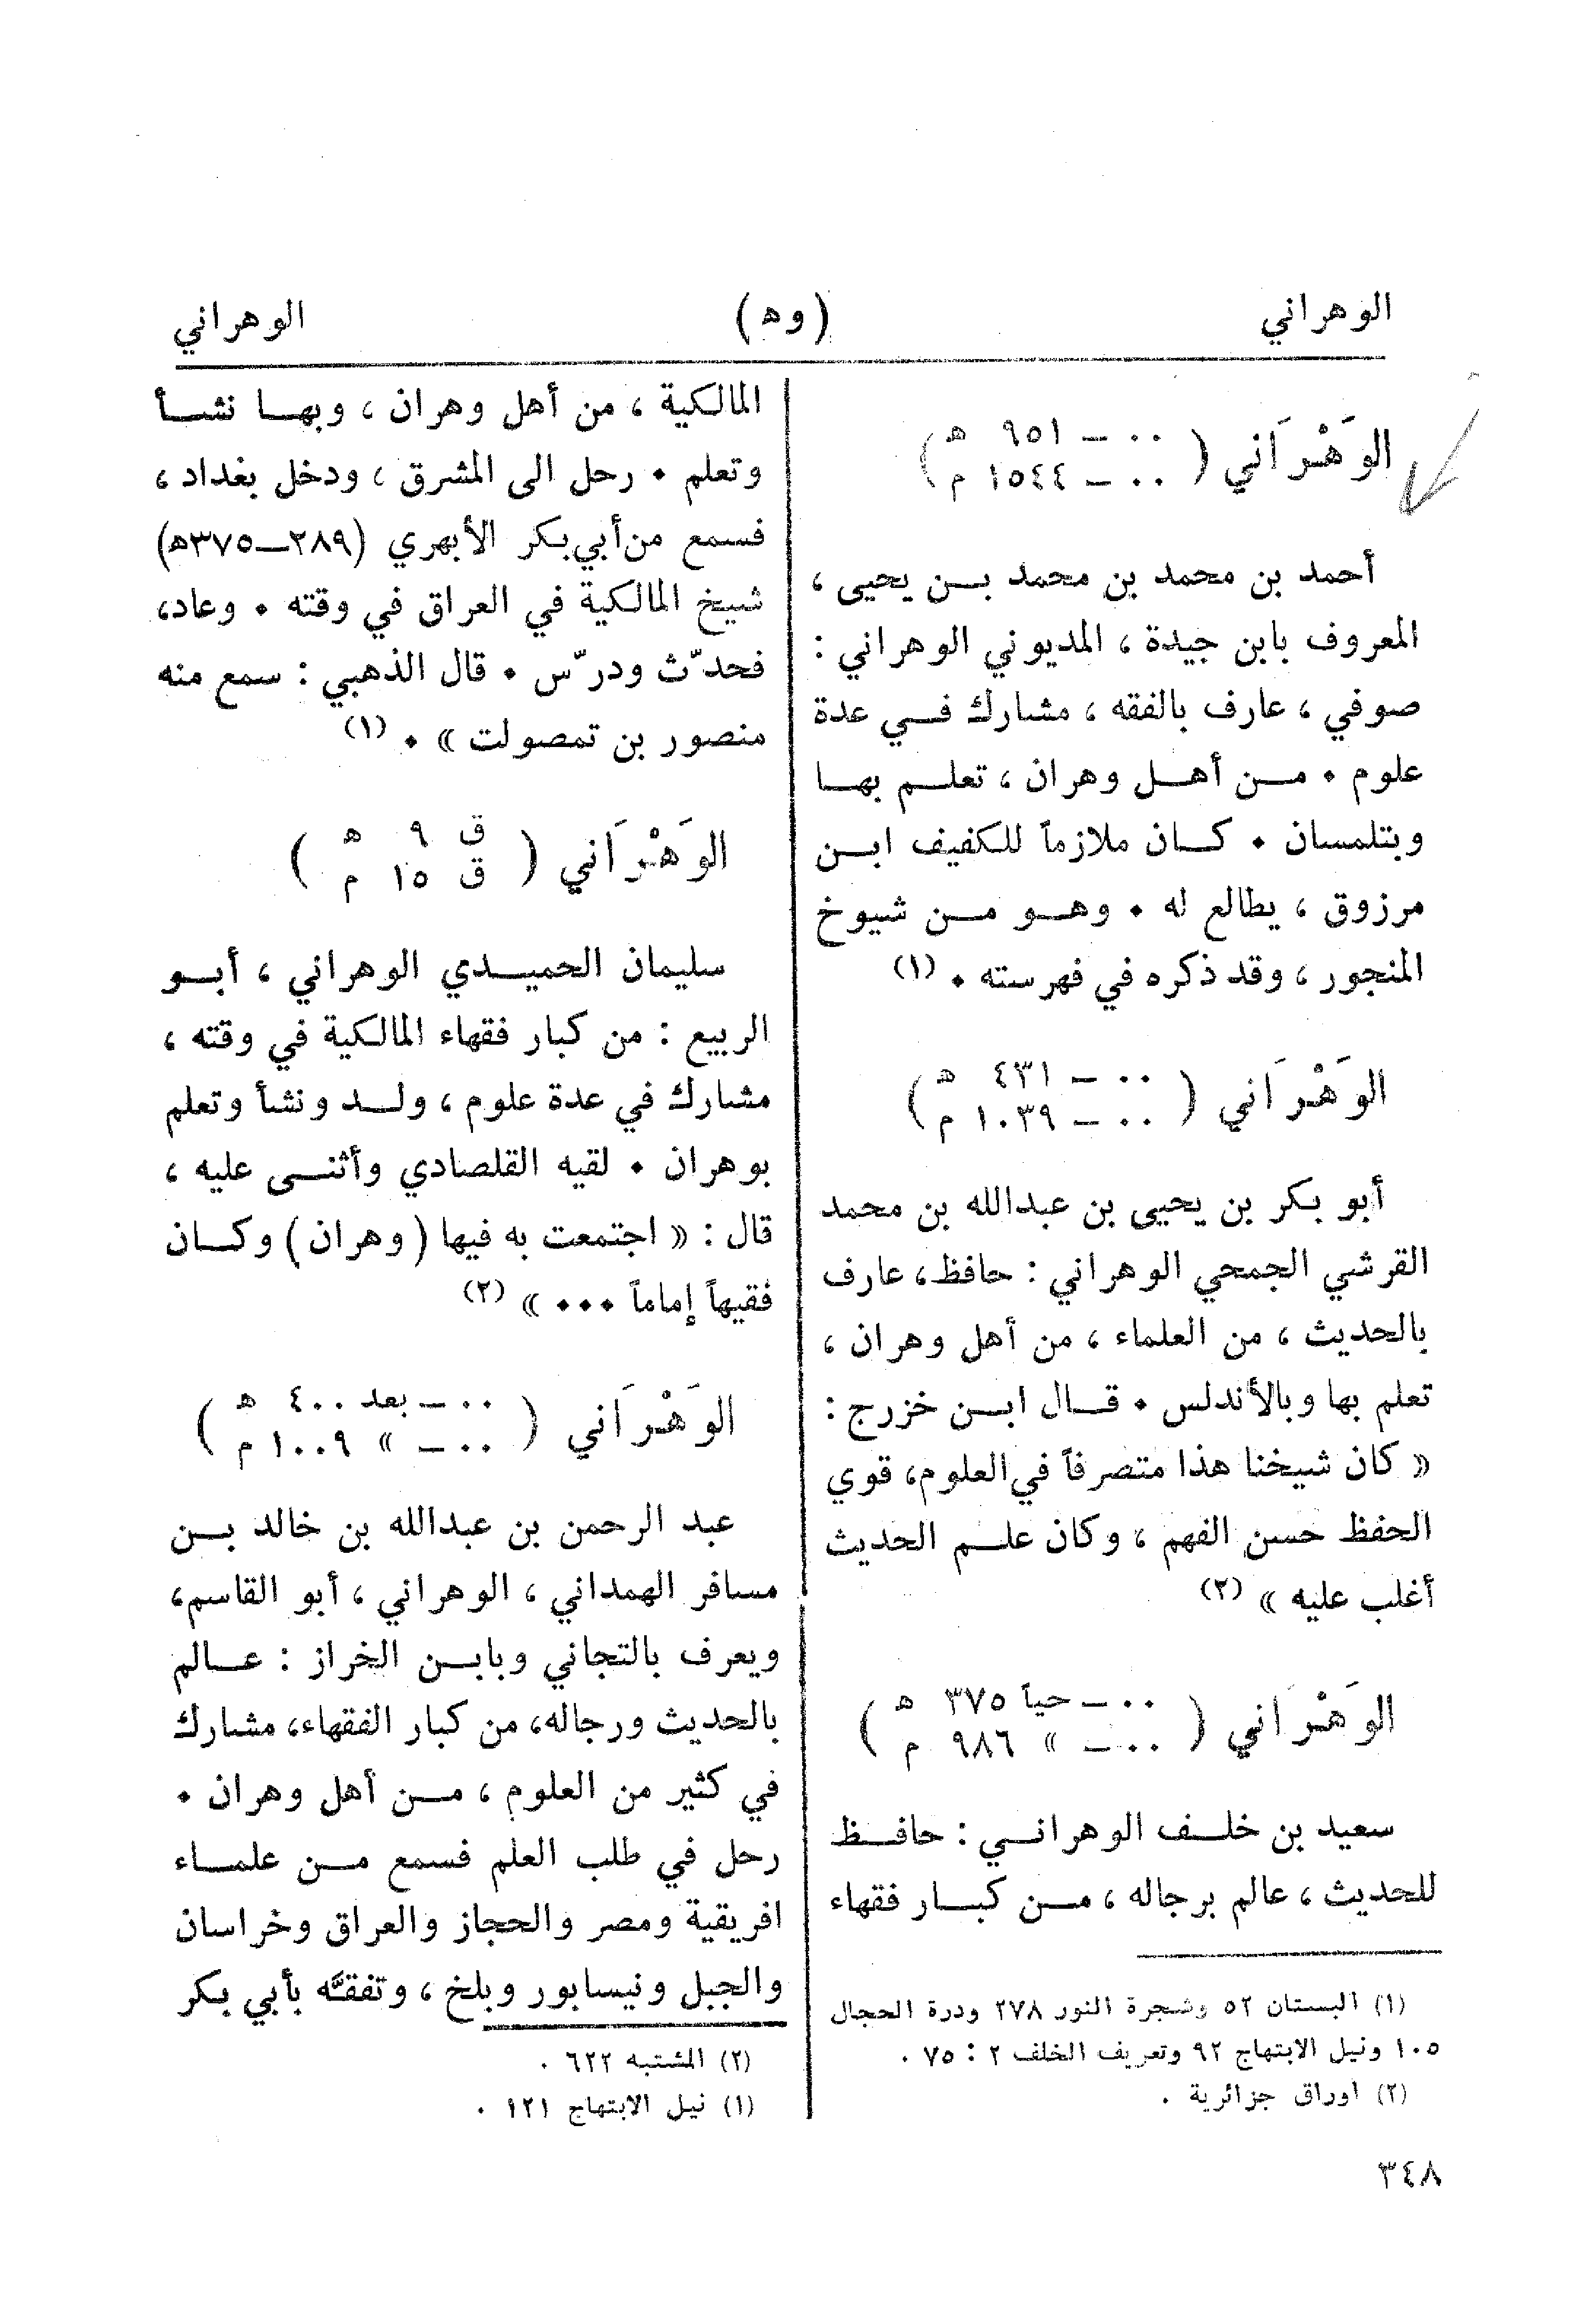 الوهراني (وه) الوهراني
الوَهْرَاني ( ٠٠ — ٩٥١ هـ
٠٠ — ١٥٤٤ م )
أحمد بن محمد بن محمد بن يحيى ،
المعروف بابن جيدة ، المديوني الوهراني :
صوفي ، عارف بالفقه ، مشارك في عدة
علوم . من أهل وهران ، تعلم بها
وبتلمسان . كان ملازماً للكفيف ابن
مرزوق ، يطالع له . وهو من شيوخ
المنجور ، وقد ذكره في فهرسته . (١)
الوَهْرَاني ( ٠٠ — ٤٣١ هـ
٠٠ — ١٠٣٩ م )
أبو بكر بن يحيى بن عبدالله بن محمد
القرشي الجمحي الوهراني : حافظ، عارف
بالحديث ، من العلماء ، من أهل وهران ،
تعلم بها وبالأندلس . قال ابن خزرج :
« كان شيخنا هذا متصرفاً في العلوم، قوي
الحفظ حسن الفهم ، وكان علم الحديث
أغلب عليه » (٢)
الوَهْرَاني ( ٠٠ — حياً ٣٧٥ هـ
٠٠ — » ٩٨٦ م )
سعيد بن خلف الوهراني : حافظ
للحديث ، عالم برجاله ، من كبار فقهاء
(١) البستان ٥٢ وشجرة النور ٢٧٨ ودرة الحجال
١٠٥ ونيل الابتهاج ٩٢ وتعريف الخلف ٢ : ٧٥ .
(٢) أوراق جزائرية .
المالكية ، من أهل وهران ، وبها نشأ
وتعلم . رحل الى المشرق ، ودخل بغداد ،
فسمع من أبي بكر الأبهري (٢٨٩—٣٧٥هـ)
شيخ المالكية في العراق في وقته . وعاد،
فحدّث ودرّس . قال الذهبي : سمع منه
منصور بن تمصولت » . (١)
الوَهْرَاني ( ق ٩ هـ
ق ١٥ م )
سليمان الحميدي الوهراني ، أبو
الربيع : من كبار فقهاء المالكية في وقته ،
مشارك في عدة علوم ، ولد ونشأ وتعلم
بوهران . لقيه القلصادي وأثنى عليه ،
قال : « اجتمعت به فيها (وهران) وكان
فقيهاً إماماً ... » (٢)
الوَهْرَاني ( ٠٠ — بعد ٤٠٠ هـ
٠٠ — » ١٠٠٩ م )
عبد الرحمن بن عبدالله بن خالد بن
مسافر الهمداني ، الوهراني ، أبو القاسم،
ويعرف بالتجاني وبابن الخراز : عالم
بالحديث ورجاله، من كبار الفقهاء، مشارك
في كثير من العلوم ، من أهل وهران .
رحل في طلب العلم فسمع من علماء
افريقية ومصر والحجاز والعراق وخراسان
والجبل ونيسابور وبلخ ، وتفقَّه بأبي بكر
(٢) المشتبه ٦٢٢ .
(١) نيل الابتهاج ١٢١ .
٣٤٨